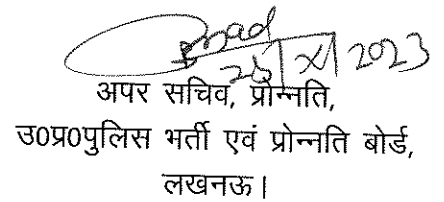 25/X/2023
अपर सचिव, प्रोन्नति,
उ0प्र0पुलिस भर्ती एवं प्रोन्नति बोर्ड,
लखनऊ।